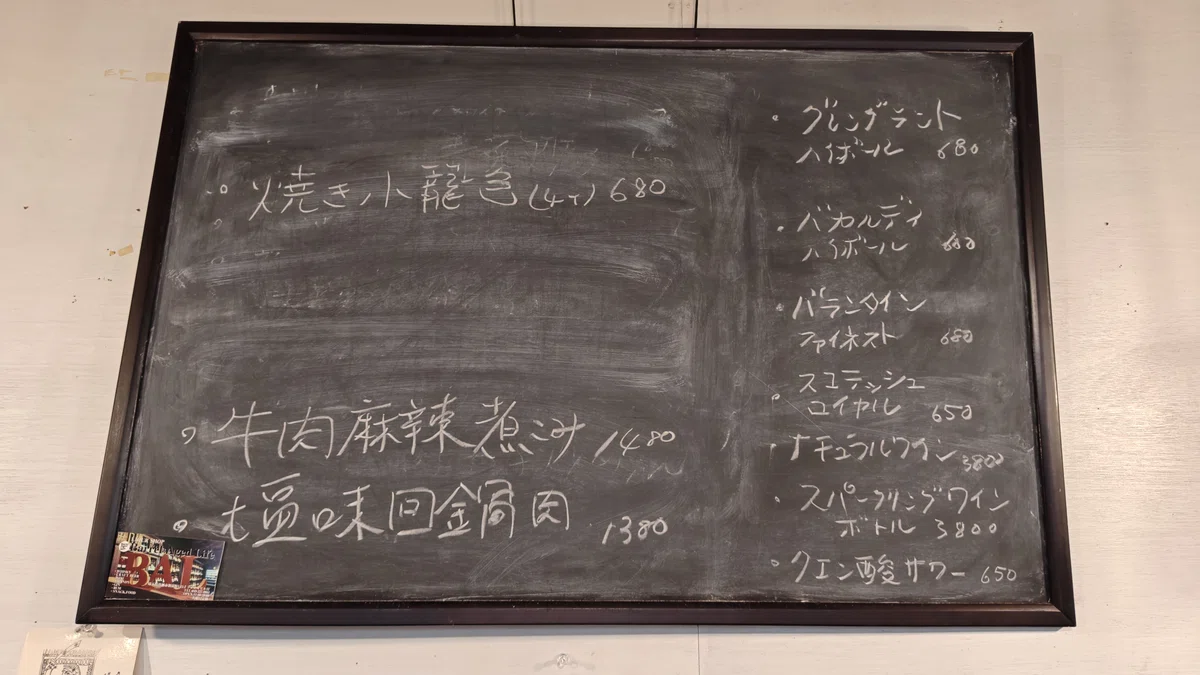 焼き小籠包(4ケ) 680
牛肉麻辣煮込み 1480
塩味回鍋肉 1380
グレングラント
ハイボール 680
バカルディ
ハイボール 680
バランタイン
ファイネスト 680
スコテッシュ
ロイヤル 650
ナチュラルワイン 3800
スパークリングワイン
ボトル 3800
クエン酸サワー 650
BAL